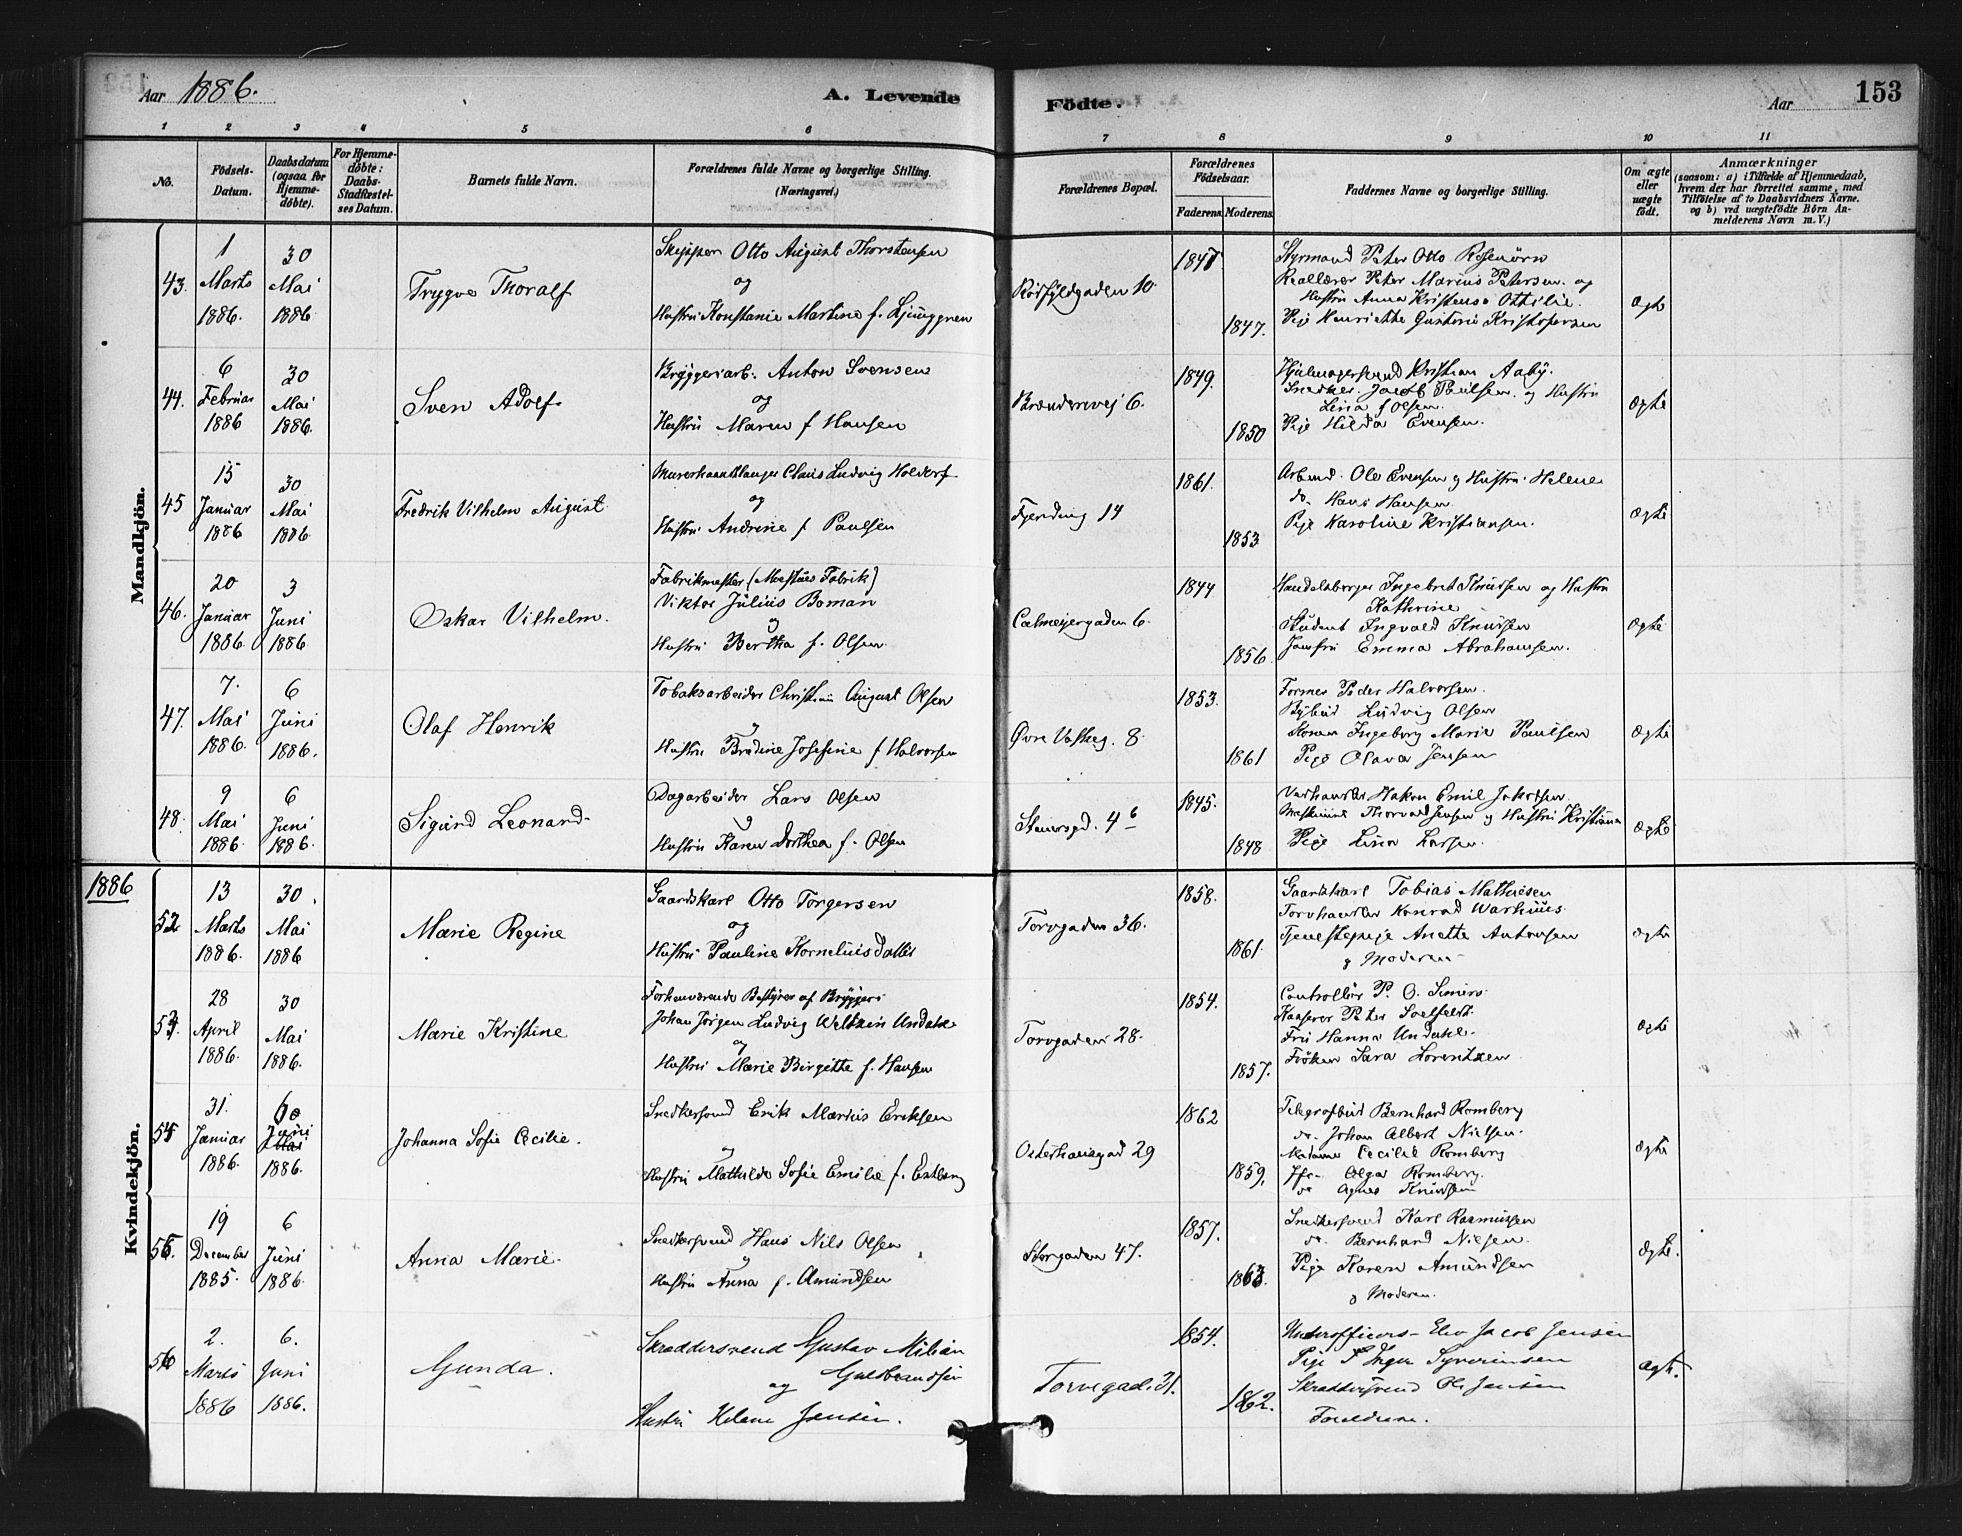 Aar 1886.
A. Levende Födte.
Aar
153
1 2 3 4 5 6 7 8 9 10 11
No.
Födsels-Datum.
Daabsdatum (ogsaa for Hjemme-döbte).
For Hjemme-döbte: Daabs-Stadfæstel-ses Datum.
Barnets fulde Navn.
Forældrenes fulde Navne og borgerlige Stilling. (Næringsvei.)
Forældrenes Bopæl.
Forældrenes Födselsaar.
Faderens Moderens
Faddernes Navne og borgerlige Stilling.
Om ægte eller uægte födt.
Anmærkninger
(saasom: a) i Tilfælde af Hjemmedaab,
hvem der har forrettet samme, med
Tilföielse af to Daabsvidners Navne.
og b) ved uægtefödte Børn An-
melderens Navn m. V.)
Mandkjön.
43. 1 Marts 1886. 30 Mai 1886
Trygve Thoralf
Skipper Otto August Thorstensen
og
Hustru Konstanie Martine f. Ljunggren
1847.
Styrmand Peter Otto Rosenörn
Reallærer Peter Marius Petersen og
Hustru Anna Kristense Ottilie.
Pige Henriette Gustava Kristofersen
Ægte
44. 6 Februar 1886 30 Mai 1886.
Sven Adolf.
Bryggeriarb. Anton Svensen
og
Hustru Maren f Hansen
6.
1849.
1850
Hjulmagersvend Kristian Aaby.
Snedker Jacob Paulsen og Hustru
Lina f Olsen.
Pige Hilda Evensen.
Ægte
45 15 Januar 1886 30 Mai 1886.
Fredrik Vilhelm August
Murerhaandlanger Claus Ludvig Holdorf
og
Hustru Andrine f Paulsen
Fjerding 14
1861.
1853
Arbmd. Ole Evensen og Hustru Helene
do. Hans Hansen
Pige Karoline Kristiansen.
Ægte
46. 20 Januar 1886. 3 Juni 1886.
Oskar Vilhelm.
Viktor Julius Boman
og
Hustru Bertha f. Olsen
Calmeyergaden 6.
1844
1856.
Handelsborger Ingebret Knudsen og Hustru
Kathrine
Student Ingvald Knudsen
Jomfru Emma Abrahamsen.
Ægte
47. 7. Mai 1886. 6 Juni 1886.
Olaf Henrik
Tobaksarbeider Christian August Olsen
og
Hustru Bredine Josefine f Halvorsen
8.
1853.
1861
Former Peder Halvorsen.
Bybud Ludvig Olsen
Konen Ingeborg Marie Paulsen
Pige Olava Jensen
Ægte
48. 9 Mai 1886. 6 Juni 1886.
Sigurd Leonard
Dagarbeider Lars Olsen
og
Hustru Karen Dorthea f. Olsen
1845.
1848
Hakon Emil
Thorvald Jensen og Hustru Kristiana
Pige Lina Larsen.
Ægte
Kvindekjön.
1886
52 13 Marts 1886. 30. Mai 1886
Marie Regine
Gaardskarl Otto Torgersen
og
Hustru Pauline Kornelius datter
Torvgaden 36.
1858.
1861.
Gaardskarl Tobias Mathiesen
Torvhandler Konrad Warhuus
Tjenestepige Anette Antonsen
og Moderen
Ægte
53. 28 April 1886. 30 Mai 1886.
Marie Kristine
Forhenværende Bestyrer af Bryggeri
Johan Jörgen Ludvig Weltzin Undahl
og
Hustru Marie Birgitte f. Hansen
Torvgaden 28.
1854.
1857.
Controllör P. O.
Kasserer Peter
Fru Hanna Undahl.
Fröken Sara Lorentzen
Ægte
54 31. Januar 1886. Juni Mai 1886.
Johanna Sofie Cecilie.
Snedkersvend Erik Marius Eriksen
og
Hustru Mathilde Sofie Emilie f.
Osterhausgad 29
1862
1859.
Telegrafbud Bernhard Romberg
do. Johan Albert Nielsen.
Madame Cecilie Romberg
Jfr. Olga Romberg.
do Agnes Knudsen
Ægte
55. 19 December 1885. 6 Juni 1886.
Anna Marie.
Snedkersvend Hans Nils Olsen
og
Hustru Anna f. Amundsen
Storgaden 47.
1857.
1863.
Snedkersvend Karl Rasmussen
do. Bernhard Nielsen.
Pige Karen Amundsen
og Moderen.
Ægte.
56 2. Marts 1886 6. Juni 1886.
Gunda.
Skræddersvend Gustav Milian
Guldbrandsen
og
Hustru Helene Jensen.
Torvegad. 31.
1854.
1862.
Underofficers-Elev Jacob Jensen
Pige Inger Syverinsen
Skræddersvend Ole Jensen
Forældrene.
Ægte.